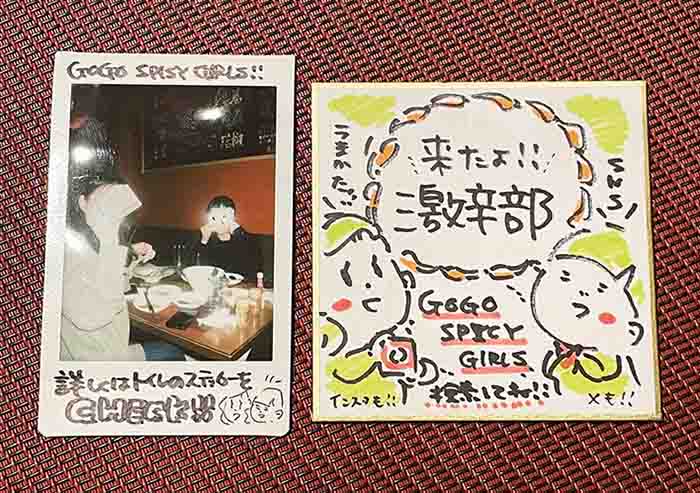 GOGO SPICY GIRLS!!
詳しくはトイレのステッカーを
CHECK!!
来たよ!!
激辛部
うまかた
SNS
GOGO
SPICY
GIRLS
検索してね!!
インスタも!!
Xも!!